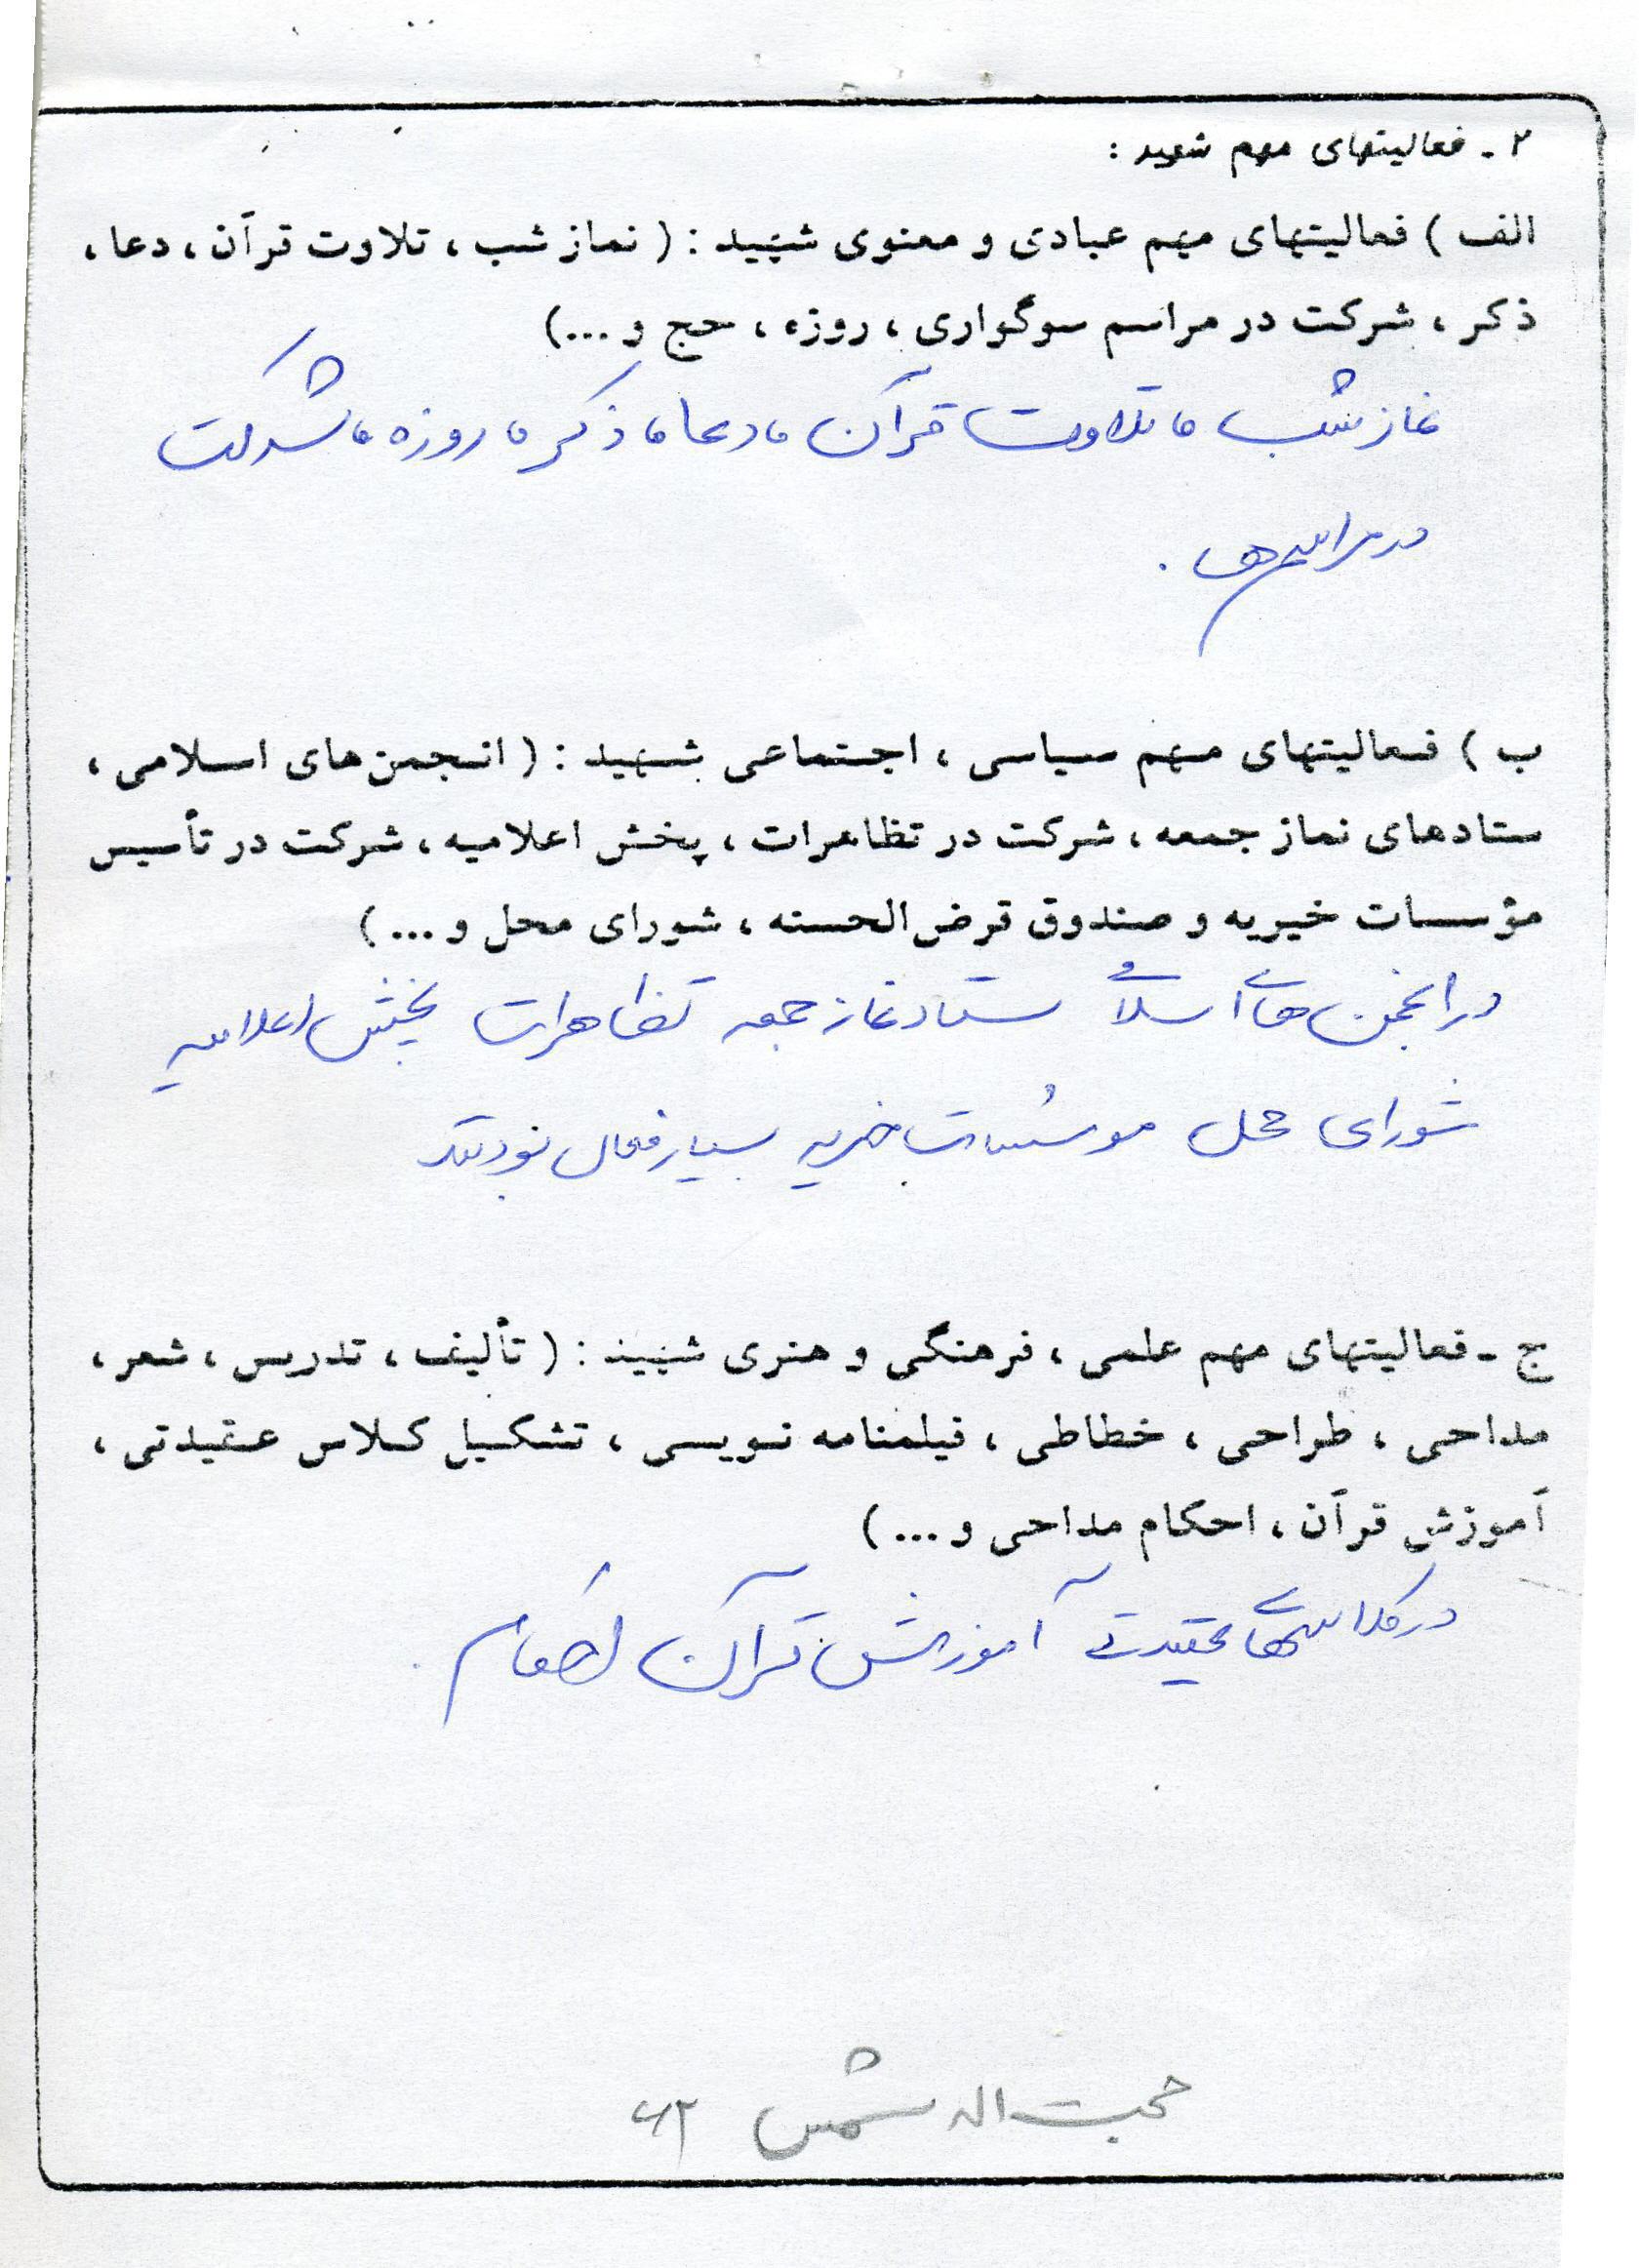 ۲ - فعالیتهای مهم شهید :
الف ) فعالیتهای مهم عبادی و معنوی شهید : ( نماز شب ، تلاوت قرآن ، دعا ،
ذکر ، شرکت در مراسم سوگواری ، روزه ، حج و ...)
نماز شب ، تلاوت قرآن ، دعا ، ذکر ، روزه ، شرکت
در مراسم ها .
ب ) فعالیتهای مهم سیاسی ، اجتماعی شهید : ( انجمن های اسلامی ،
ستادهای نماز جمعه ، شرکت در تظاهرات ، پخش اعلامیه ، شرکت در تأسیس
مؤسسات خیریه و صندوق قرض الحسنه ، شورای محل و ... )
در انجمن های اسلامی و ستاد نماز جمعه تظاهرات پخش اعلامیه
شورای محل موسسات خیریه بسیار فعال بودند
ج - فعالیتهای مهم علمی ، فرهنگی و هنری شهید : ( تألیف ، تدریس ، شعر ،
مداحی ، طراحی ، خطاطی ، فیلمنامه نویسی ، تشکیل کلاس عقیدتی ،
آموزش قرآن ، احکام مداحی و ... )
در کلاسهای عقیدتی آموزش قرآن
شمس